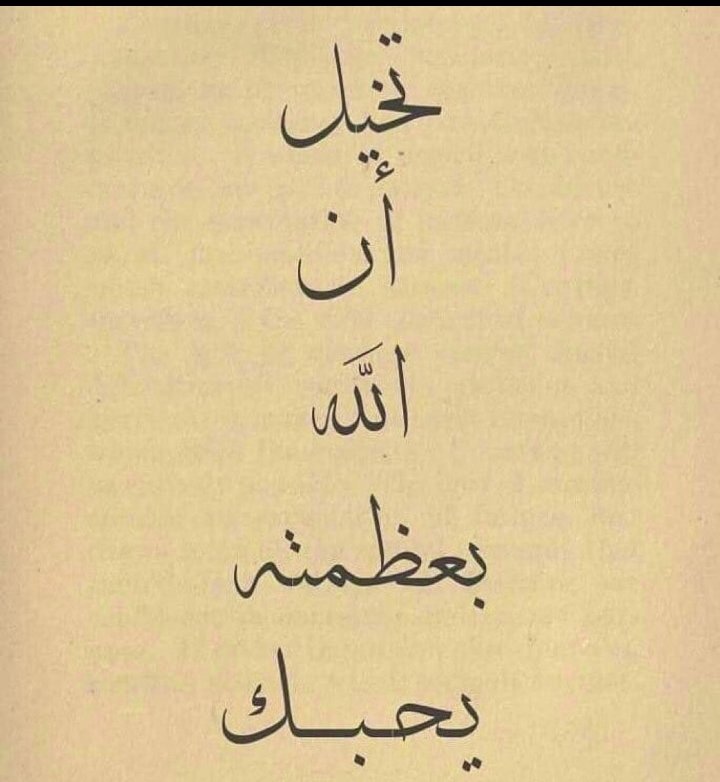 تخيل
أن
اللَّه
بعظمته
يحبك